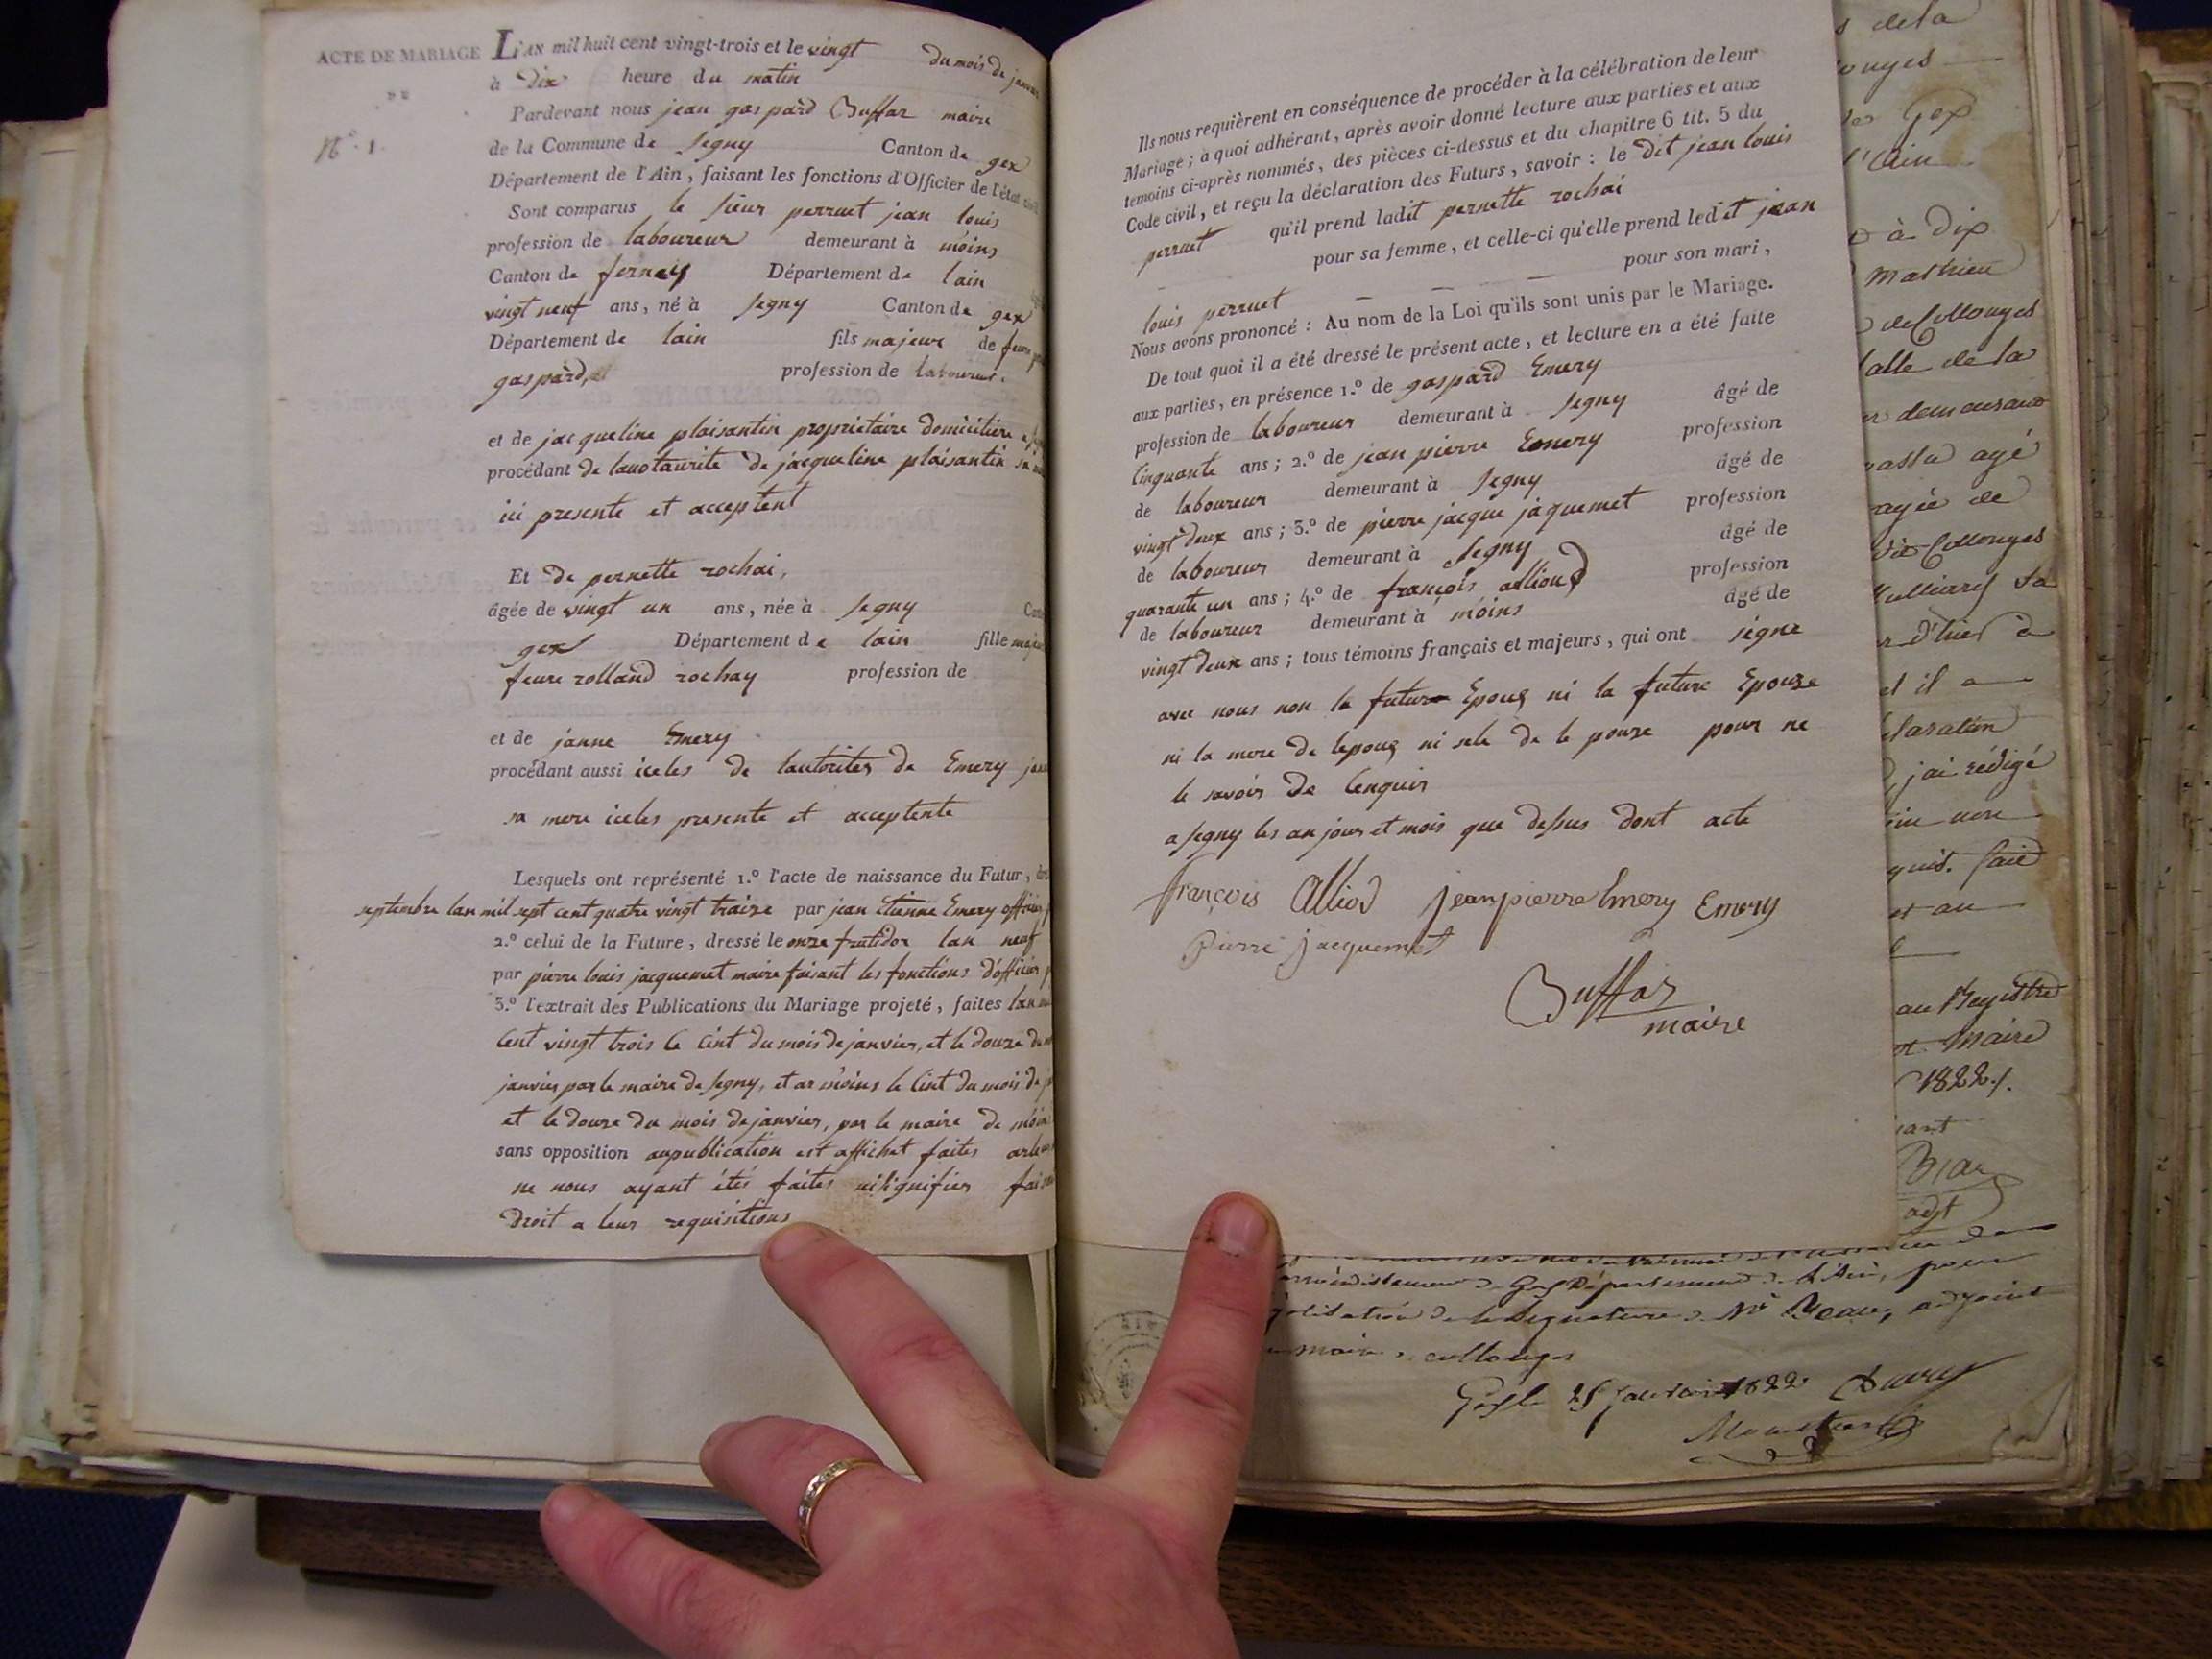 ACTE DE MARIAGE
DE
N.º 1.
L'AN mil huit cent vingt-trois et le vingt du mois de janvier
à dix heure du matin
Pardevant nous jean gaspard Buffaz maire
de la Commune de Segny Canton de gex
Département de l'Ain, faisant les fonctions d'Officier de l'état civil
Sont comparus le sieur perruet jean louis
profession de laboureur demeurant à moins
Canton de ferney Département de lain
vingt neuf ans, né à segny Canton de gex
Département de lain fils majeur de feu
gaspard, profession de laboureur.
et de jacqueline plaisantin proprietaire domiciliere
procédant de lauotaurite de jacqueline plaisantin sa
ici presente et acceptent
Et de pernette rochai,
âgée de vingt un ans, née à segny
gex Département de lain fille
feure rolland rochay profession de
et de janne Emery
procédant aussi iceles de lautorites de Emery
sa mere iceles presente et acceptente
Lesquels ont représenté 1.º l'acte de naissance du Futur,
septembre lan mil sept cent quatre vingt traize par jean Etienne Emery officier
2.º celui de la Future, dressé le onze frutidor lan neuf
par pierre louis jacquemet maire faisant les fonctions d'officier
3.º l'extrait des Publications du Mariage projeté, faites lan
Cent vingt trois le Cint du mois de janvier, et le douze du
janvier par le maire de segny, et ar moins le Cint du mois de
et le douze du mois de janvier, par le maire de moin
sans opposition aupublication est affichet faites
ne nous ayant étés faites nisignifier
droit a leur requisitions
Ils nous requièrent en conséquence de procéder à la célébration de leur
Mariage; à quoi adhérant, après avoir donné lecture aux parties et aux
temoins ci-après nommés, des pièces ci-dessus et du chapitre 6 tit. 5 du
Code civil, et reçu la déclaration des Futurs, savoir: le dit jean louis
perruet qu'il prend ladit pernette rochai
pour sa femme, et celle-ci qu'elle prend ledit jean
louis perruet pour son mari,
Nous avons prononcé: Au nom de la Loi qu'ils sont unis par le Mariage.
De tout quoi il a été dressé le présent acte, et lecture en a été faite
aux parties, en présence 1.º de gaspard Emery
profession de laboureur demeurant à segny âgé de
Cinquante ans; 2.º de jean pierre Emery profession
de laboureur demeurant à segny âgé de
vingt deux ans; 3.º de pierre jacque jaquemet profession
de laboureur demeurant à segny âgé de
quarante un ans; 4.º de françois alliod profession
de laboureur demeurant à moins âgé de
vingt deux ans; tous témoins français et majeurs, qui ont signe
avec nous non le future Epoux ni la future Epouze
ni la mere de lepoux ni sele de le pouze pour ne
le savoir de Cenquis
a segny les an jour et mois que dessus dont acte
françois Alliod jean pierre Emery Emery
Pierre Jacquemet
Buffaz
maire
de la
de Gex
l'Ain
à dix
mathieu
de Collonges
salle de la
demeurant
agé
agée de
Collonges
d'hier
et il a
j'ai rédigé
fait
et au
au Registre
Maire
1822.
adjt
Département de l'Ain, pour
de la signature de Mr adjoint
Collonges
1822